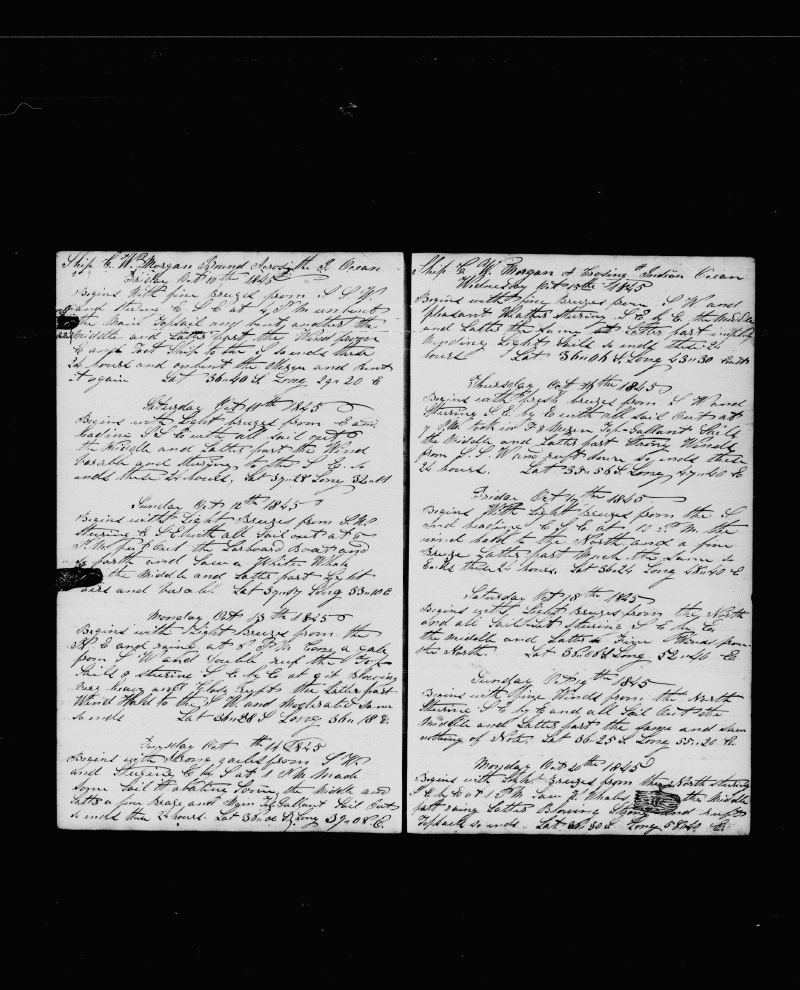 Ship C. W. Morgan Bound Across the I. Ocean
Friday Oct 10th 1845
Begins With fine Breezes from S S W.
and Stering E. S. E at 4 P M unbent
the Main Topsail and bent another the
Middle and Latter part the Wind
Ship to the S so ends these
24 hours and unbent the and bent
it again Lat 36"40 S Long 29" 20 E
Saturday Oct 11th 1845
Begins with Light breezes from E and
heading S E with all Sail out
the Middle and Latter part the Wind
varable and stering to the S E. So
ends these 24 hours. Lat 37"28 Long 32"11
Sunday Oct 12th 1845
Begins with Light Breezes from
Steering E S E with all Sail out at 5
P. M. put out the Larboard Boat and
so forth and Saw a White Whale
the Middle and Latter part Light
airs and varable Lat 37"17 Long 33"10 E
Monday Oct 13th 1845
Begins with Light Breezes from the
N. E and raine at 8 P M Came a gale
from S W and double reef the Top
Sails stering S E by E at 9 it Blowing
very heavy and the Latter part
Wind Held to the S W. and Moderated Some
So ends Lat 36"28 S Long 36"18 E.
Tuesday Oct th 14 1845
Begins with Strong gailes from S W.
and Stering E by S at 1 P M made
Some Sail it abating Some, the Middle and
Latter a fine breeze and Main Top Gallant Sail Out
So ends these 24 hours. Lat 36"06 S Long 39"08 E.
Ship C. W. Morgan Crosing Indian Ocean
Wednesday Oct 15th 1845
Begins with fine Breezes from S W and
pleasant Weather stering S E by E, the Middle
and Latter the same at Latter part employ
mending Light Sails so ends these 24
hours Lat 36"06 S Long 43"30 East
Thursday Oct 16th 1845
Begins with Fresh breezes from S W and
Stering S. E. by E with all sail Out at
7 P. M. took in F & Mizen Top Gallant Sails
the Middle and Latter part Strong Winds
from S. S. W and reeft down So ends these
24 hours. Lat 35"56 S Long 47"40 E
Friday Oct 17th 1845
Begins With Light breezes from the S
and heading E S E at 12 P. M. the
wind held to the North and a fine
Breeze Latter part Much the same so
Ends these 24 hours. Lat 36"24 Long 48"40 E
Saturday Oct 18th 1845
Begins with Light Breezes from the North
and all Sail Out stering S E by E.
the Middle and Latter a Fine Wind from
the North Lat 36"08 S Long 52"46 E
Sunday Oct 19th 1845
Begins with Fine Winds from the North
Stering S E by E and all Sail Out the
Middle and Latter part the Same and Saw
nothing of Note. Lat 36"25 S. Long 55"20 E.
Monday Oct 20th 1845
Begins with Light Breezes from the North stering
S E by E at 1 P M Saw Whales the Middle
part raing Latter Blowing Strong and reeft
Topsails so ends Lat. 36"30 S. Long 58"40 E.